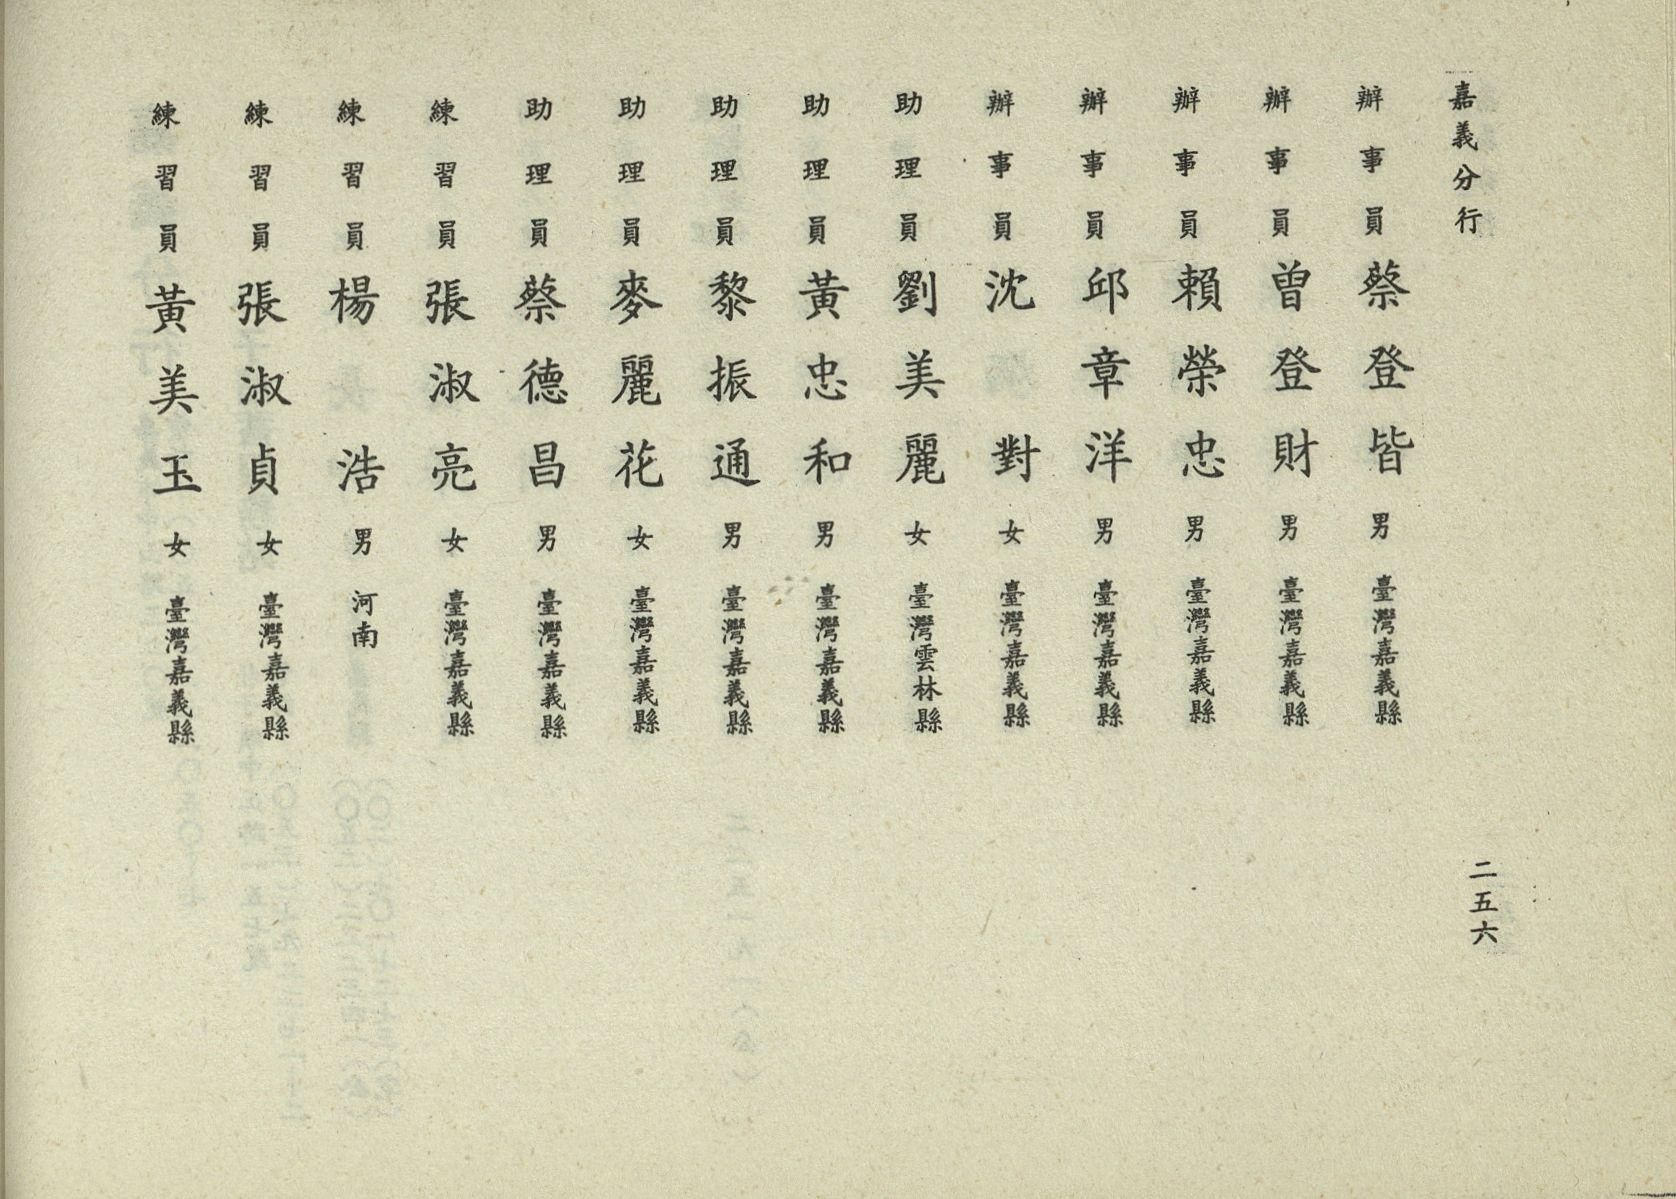 嘉義分行
二五六
辦事員蔡登皆男臺灣嘉義縣
辦事員曾登財男臺灣嘉義縣
辦事員賴榮忠男臺灣嘉義縣
辦事員邱章洋男臺灣嘉義縣
辦事員沈對女臺灣嘉義縣
助理員劉美麗女臺灣雲林縣
助理員黃忠和男臺灣嘉義縣
助理員黎振通男臺灣嘉義縣
助理員麥麗花女臺灣嘉義縣
助理員蔡德昌男臺灣嘉義縣
練習員張淑亮女臺灣嘉義縣
練習員楊浩男河南
練習員張淑貞女臺灣嘉義縣
練習員黃美玉女臺灣嘉義縣